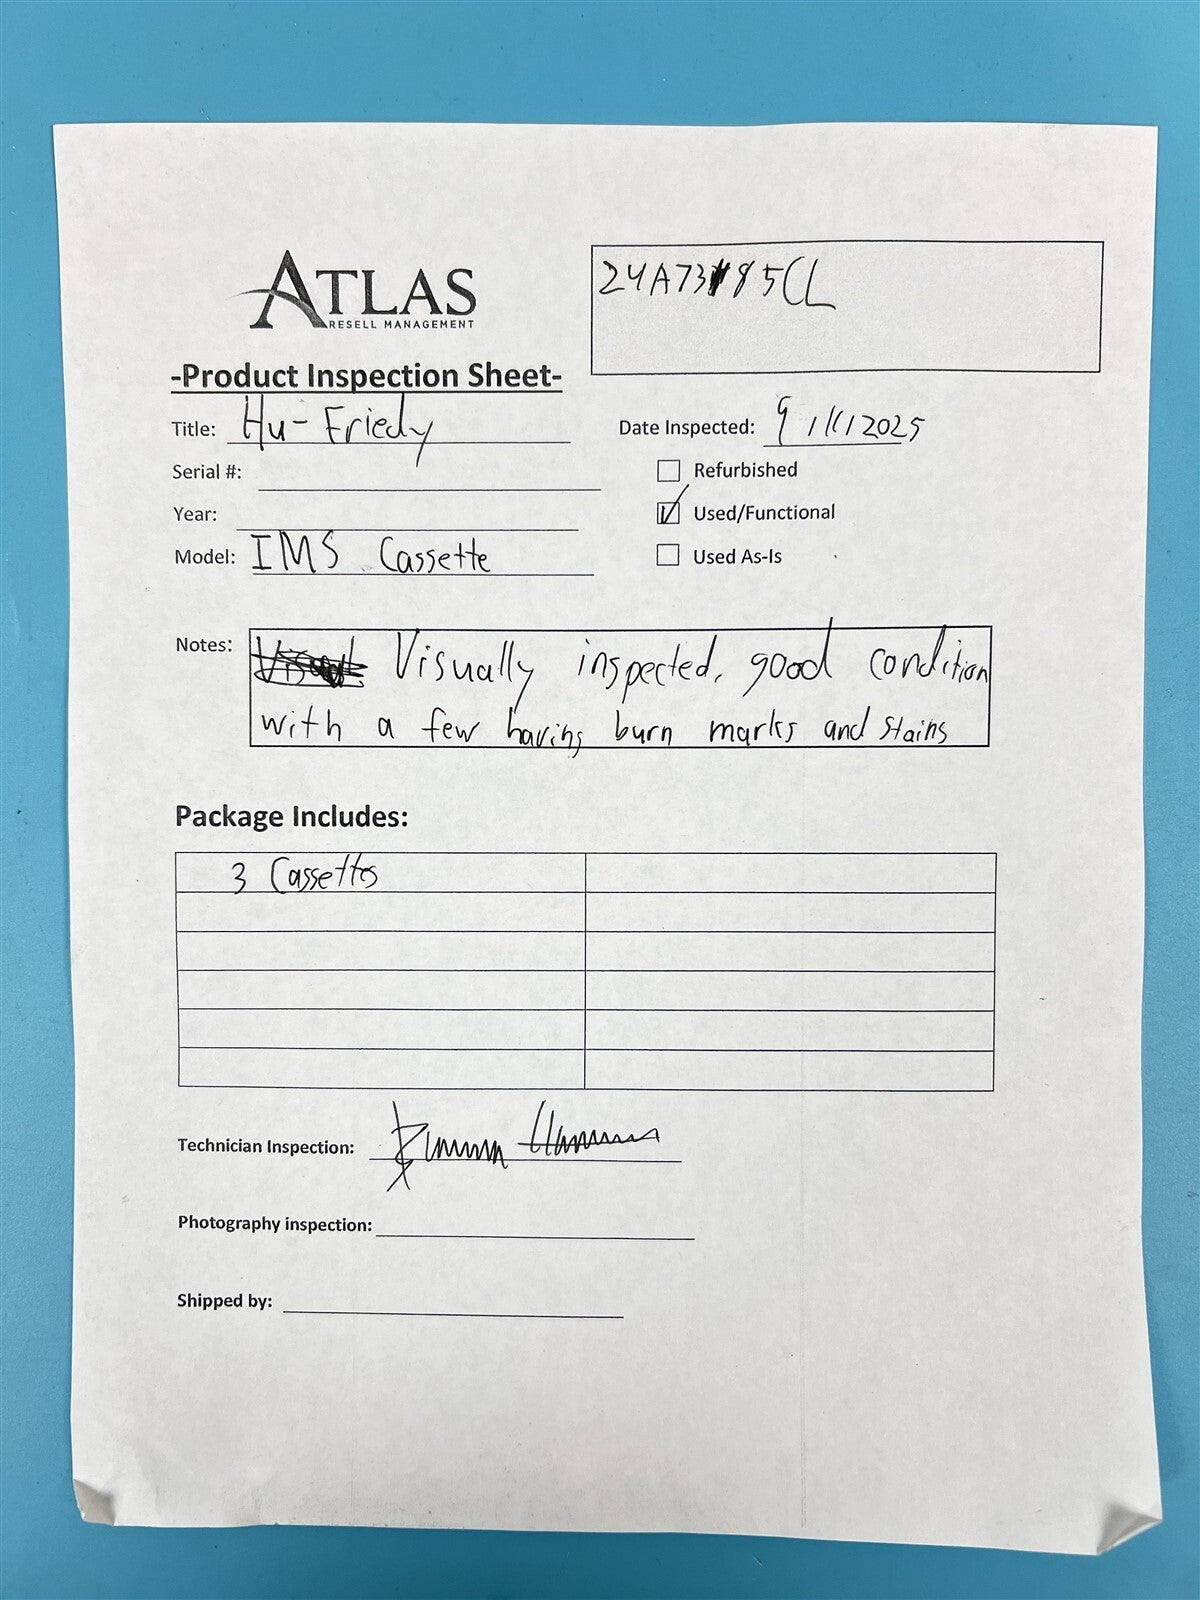 ATLAS
RESELL MANAGEMENT
-Product Inspection Sheet-
Title: Hu-Friedy
Date Inspected: 9/11/2025
Serial #:
Refurbished
Year:
Used/Functional
Model: IMS Cassette
Used As-Is
Notes: Visually inspected, good condition
with a few having burn marks and stains
Package Includes:
3 Cassettes
Technician Inspection:
Photography inspection:
Shipped by: